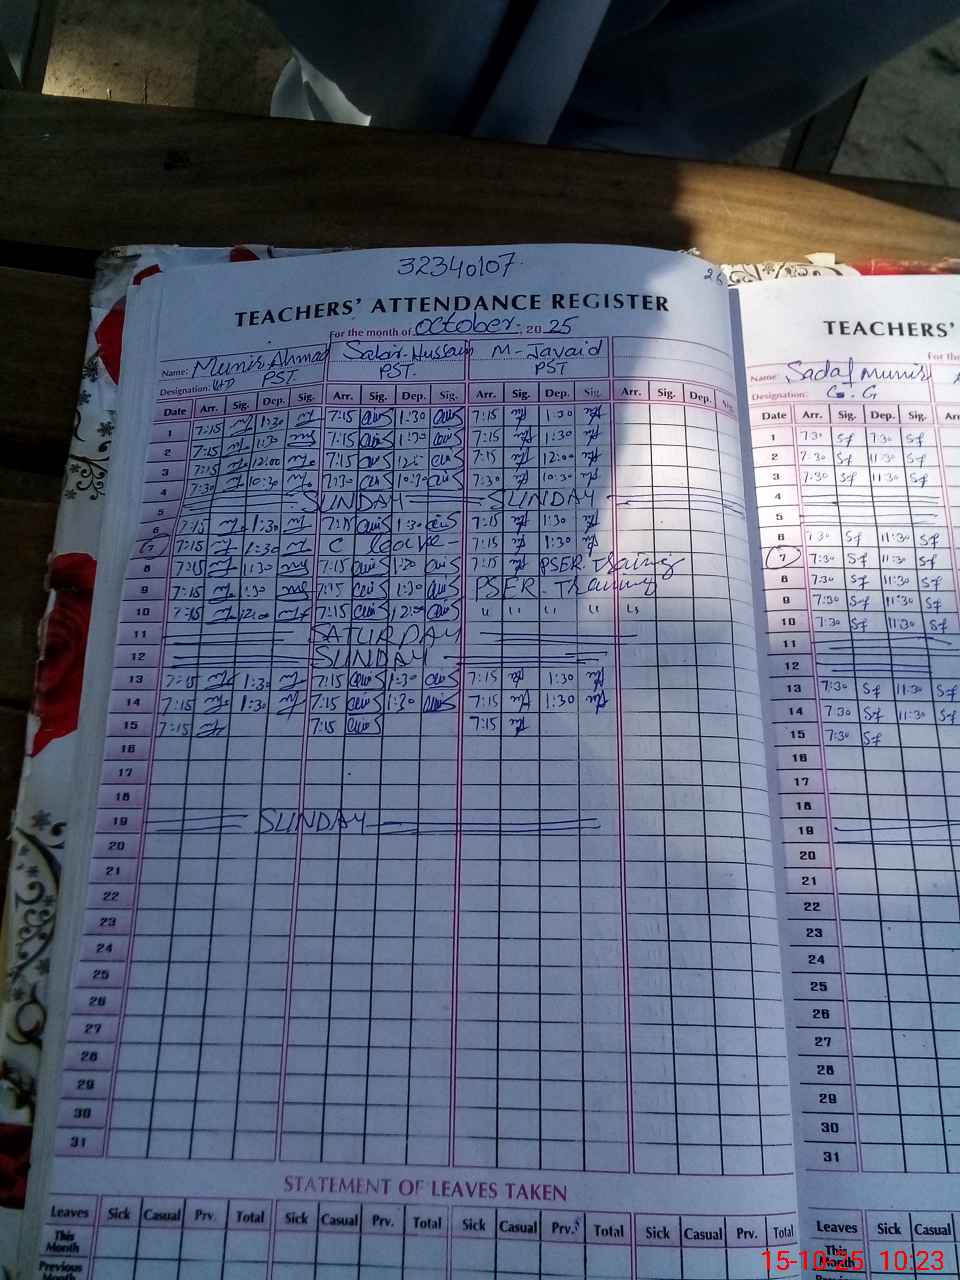 32340107
26
TEACHERS' ATTENDANCE REGISTER
For the month of October 20 25
Name: Munir Ahmad Sabir Hussain M- Javaid
Designation: PST. PST. PST
Date Arr. Sig. Dep. Sig. Arr. Sig. Dep. Sig. Arr. Sig. Dep. Sig. Arr. Sig. Dep. Sig.
1 7:15 1:30 7:15 1:30 7:15 1:30
2 7:15 1:30 7:15 1:30 7:15 1:30
3 7:15 12:00 7:15 7:15 12:00
4 7:30 10:30 7:30 10:30 7:30 10:30
5 SUNDAY SUNDAY
6 7:15 1:30 7:15 1:30 7:15 1:30
7 7:15 1:30 C leave - 7:15 1:30
8 7:15 11:30 7:15 7:15 PSER. Training
9 7:15 1:30 7:15 1:30 PSER. Training
10 7:15 12:00 7:15 12:00 " " " " "
11 SATURDAY
12 SUNDAY
13 7:15 1:30 7:15 1:30 7:15 1:30
14 7:15 1:30 7:15 1:30 7:15 1:30
15 7:15 7:15 7:15
16
17
18
19 SUNDAY
20
21
22
23
24
25
26
27
28
29
30
31
STATEMENT OF LEAVES TAKEN
Leaves Sick Casual Prv. Total Sick Casual Prv. Total Sick Casual Prv. Total Sick Casual Prv. Total
This Month
Previous Month
TEACHERS'
For the
Name: Sadaf Munir
Designation: C.G
Date Arr. Sig. Dep. Sig. Arr.
1 7:30 Sf 7:30 Sf
2 7:30 Sf 11:30 Sf
3 7:30 Sf 11:30 Sf
4
5
6 7:30 Sf 11:30 Sf
7 7:30 Sf 11:30 Sf
8 7:30 Sf 11:30 Sf
9 7:30 Sf 11:30 Sf
10 7:30 Sf 11:30 Sf
11
12
13 7:30 Sf 11:30 Sf
14 7:30 Sf 11:30 Sf
15 7:30 Sf
16
17
18
19
20
21
22
23
24
25
26
27
28
29
30
31
Leaves Sick Casual
This Month
15-10-25 10:23